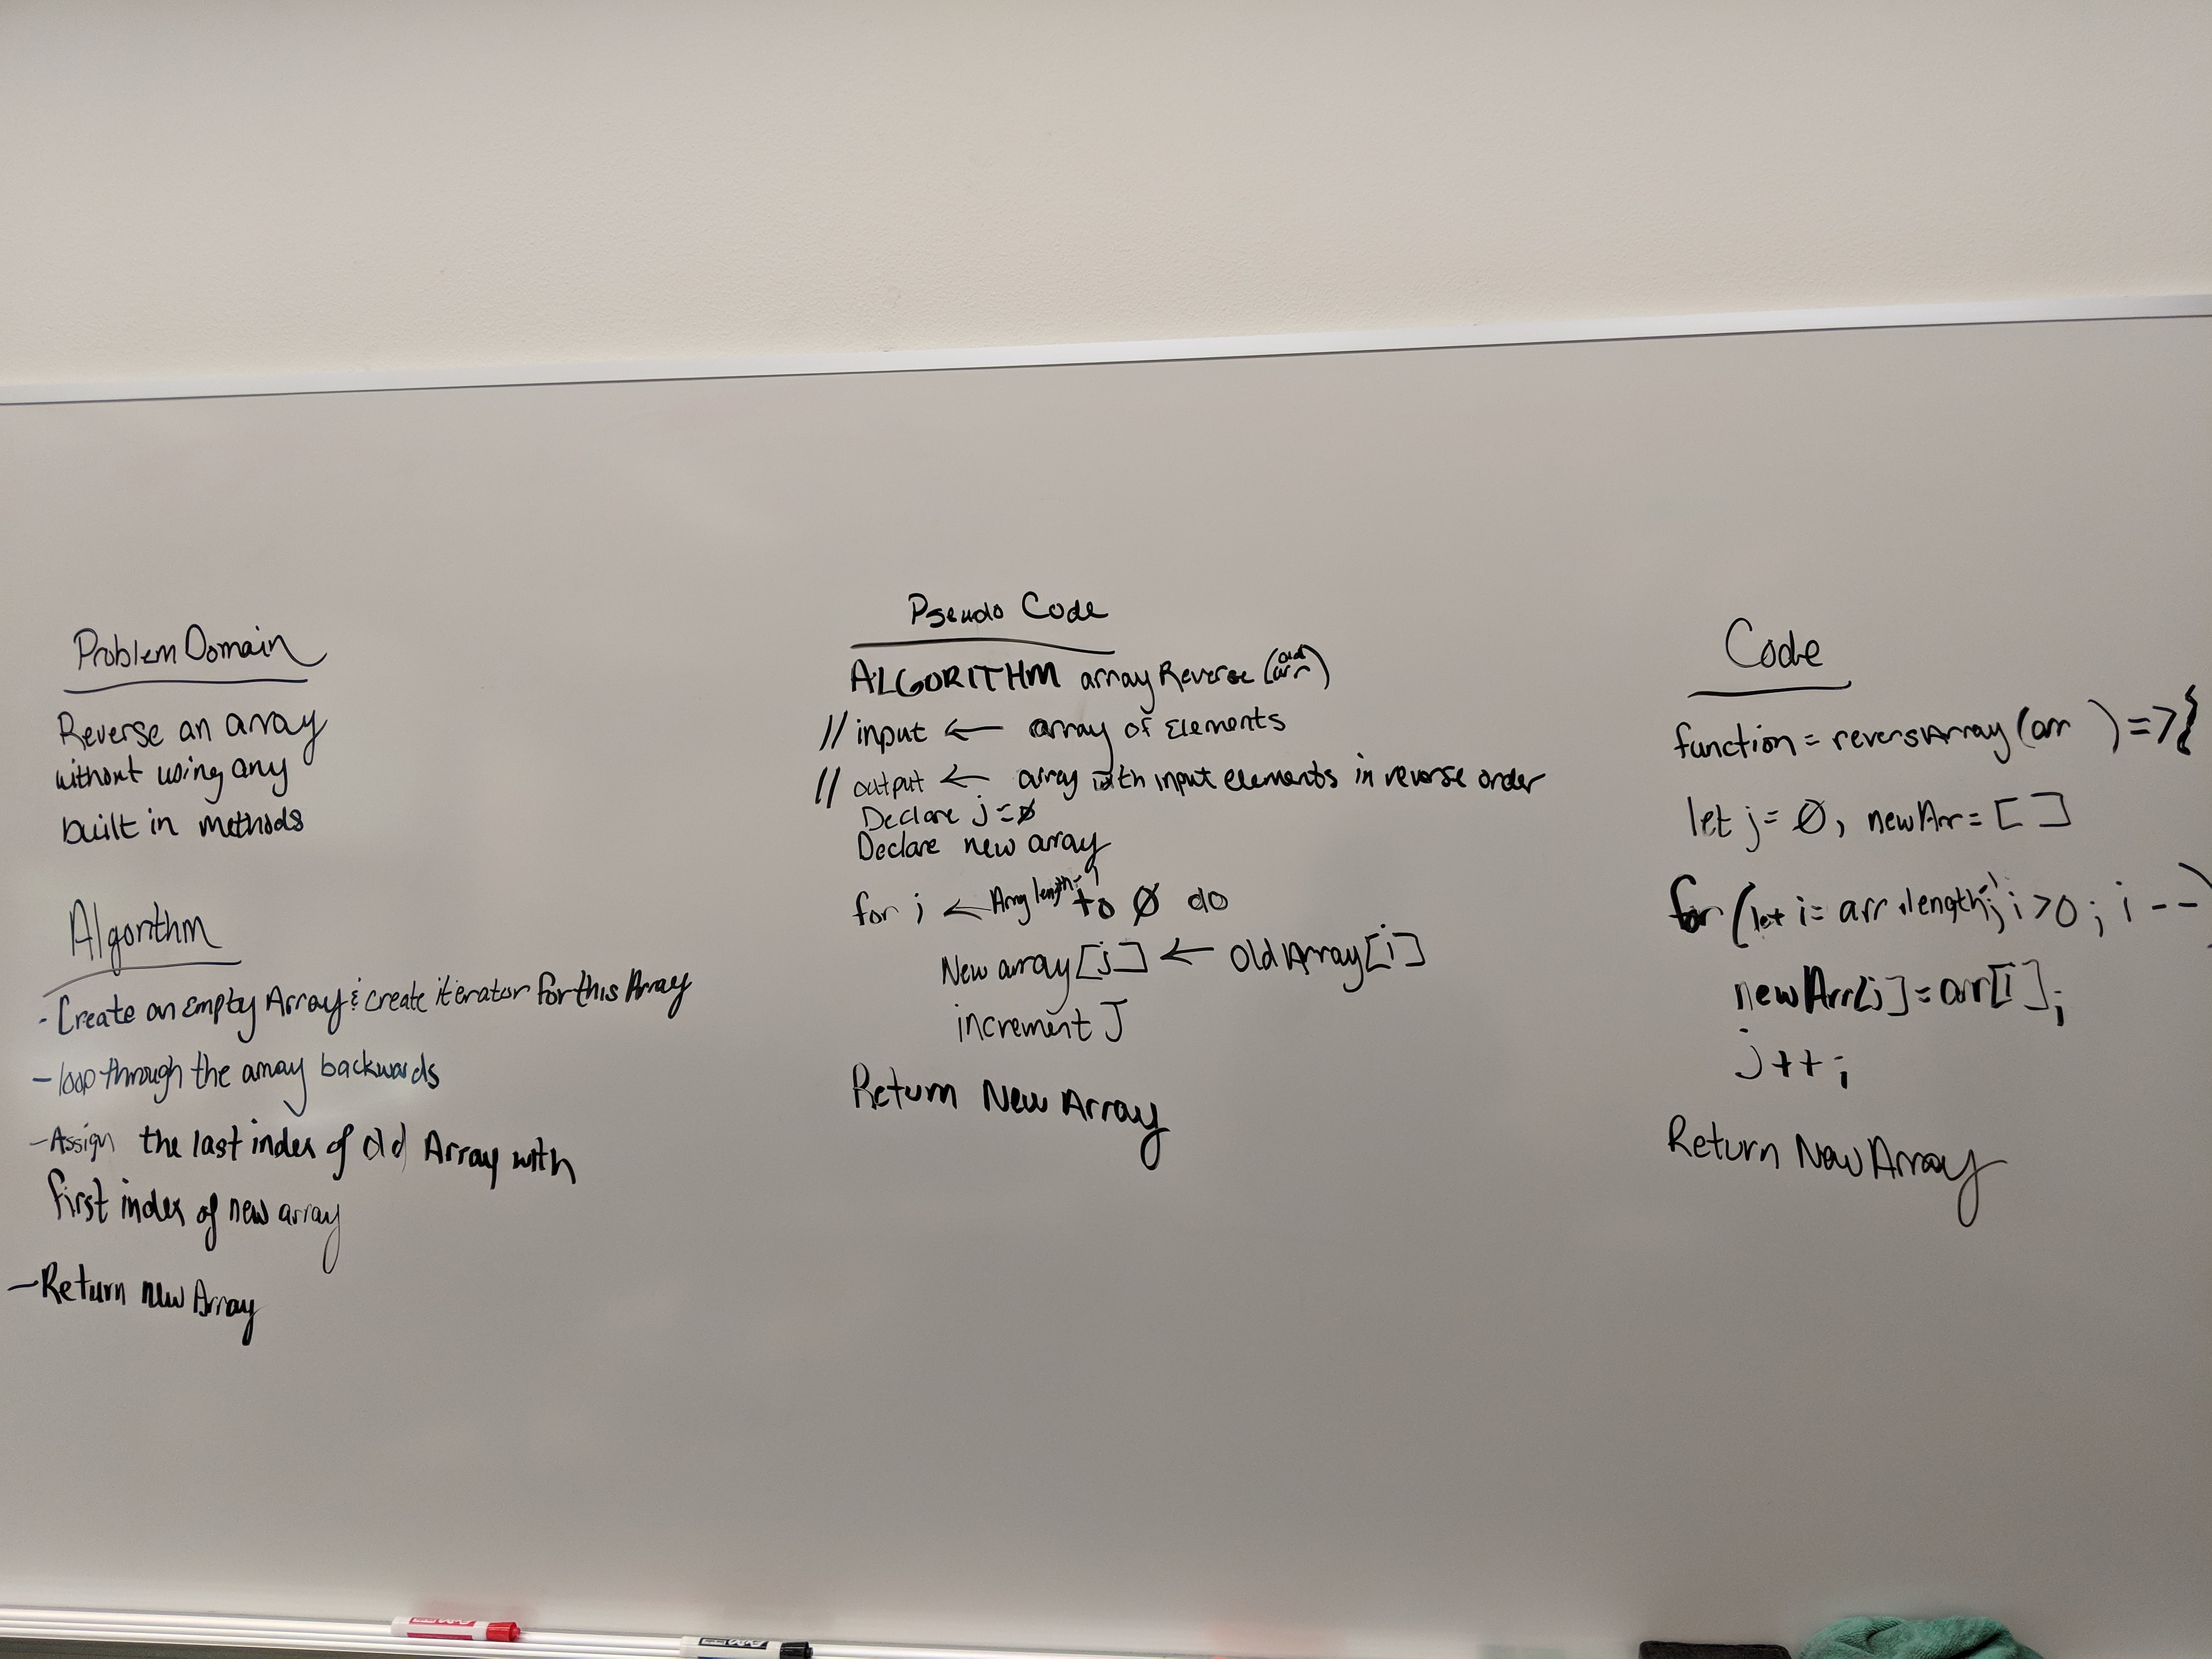 Problem Domain
Reverse an array
without using any
built in methods
Algorithm
- Create an Empty Array & create iterator for this Array
- loop through the array backwards
- Assign the last index of old Array with
first index of new array
- Return new Array
Pseudo Code
ALGORITHM arrayReverse (old arr)
// input ← array of Elements
// output ← array with input elements in reverse order
Declare j = Ø
Declare new array
for i ← Array length-1 to Ø do
New array[j] ← Old Array[i]
increment J
Return New Array
Code
function = reversArray (arr ) => {
let j = Ø, newArr = [ ]
for (let i = arr.length-1; i > 0; i --)
newArr[j] = arr[i];
j++;
Return New Array